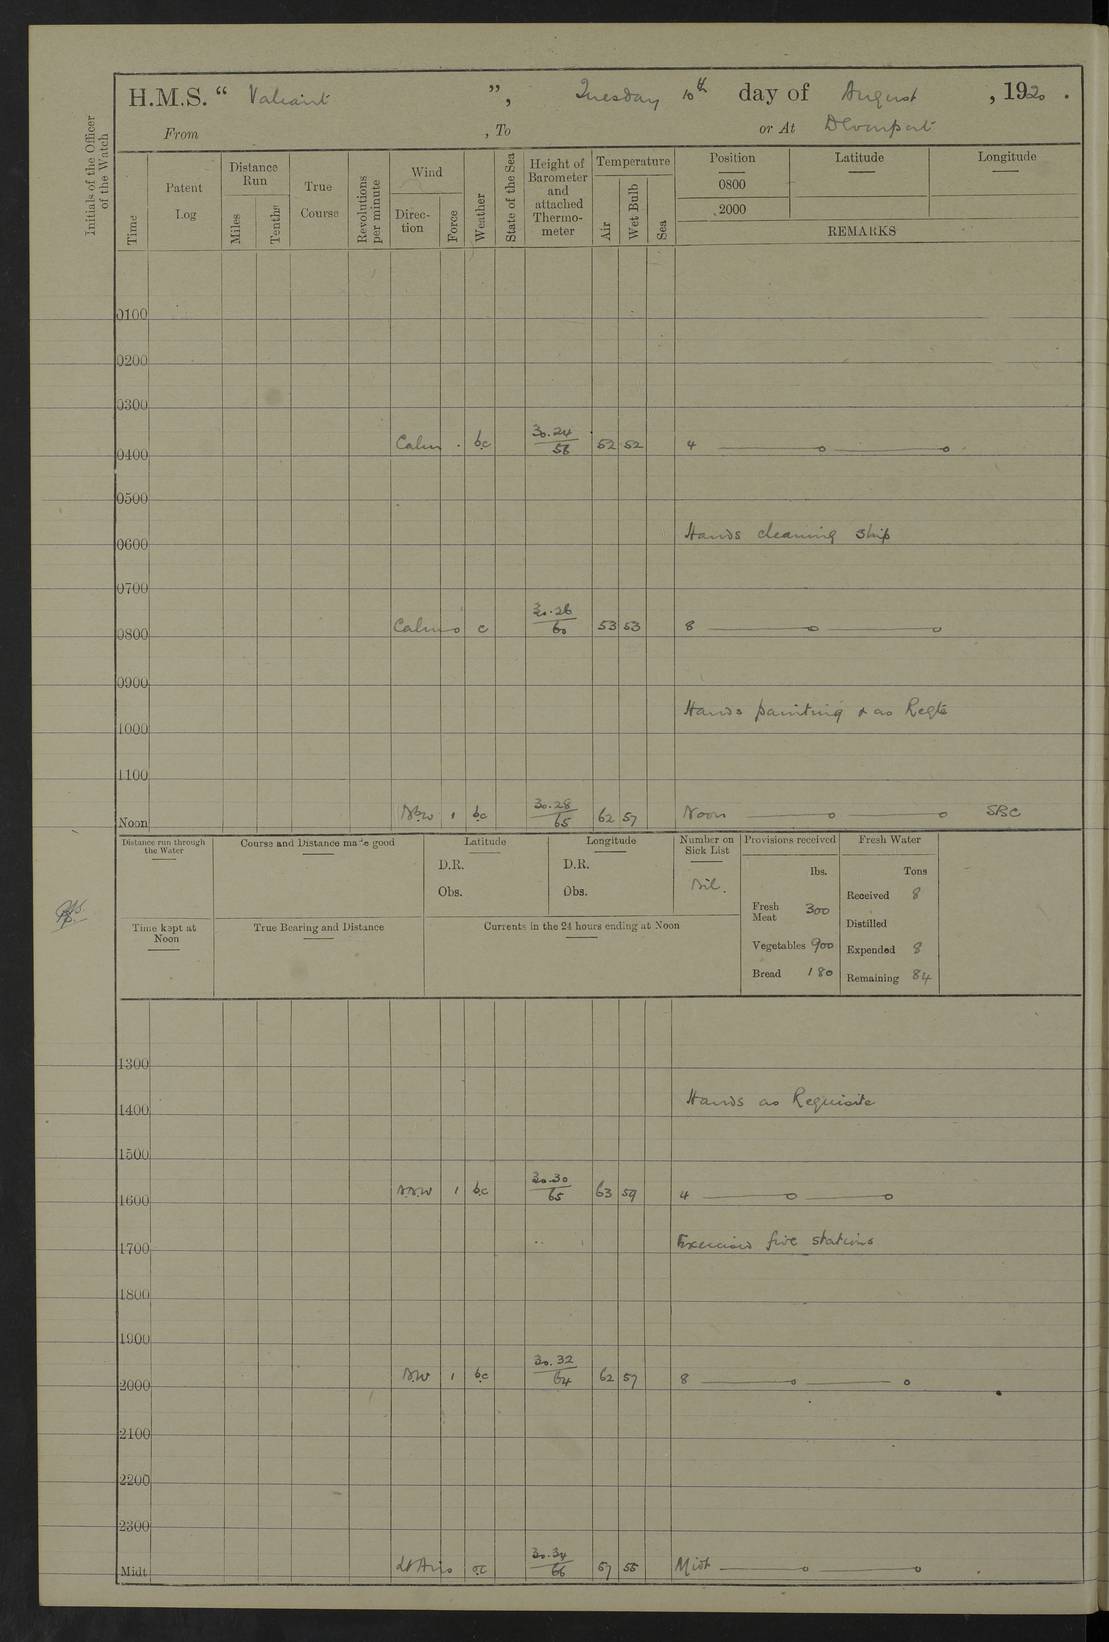 H.M.S. “ Valiant ”, Tuesday 10th day of August, 1920.
From , To or At Devonport
Initials of the Officer of the Watch
Time
Patent Log
Distance Run
Miles
Tenths
True Course
Revolutions per minute
Wind
Direction
Force
Weather
State of the Sea
Height of Barometer and attached Thermometer
Temperature
Air
Wet Bulb
Sea
Position Latitude Longitude
0800
2000
REMARKS
0100
0200
0300
0400 Calm . bc 30.24 58 52 52 4
0500
0600 Hands cleaning ship
0700
0800 Calm o c 30.26 60 53 53 8
0900
1000 Hands painting & as Reqte
1100
Noon 1 bc 30.28 65 62 57 Noon SBC
Distance run through the Water
Course and Distance made good
Latitude
D.R.
Obs.
Longitude
D.R.
Obs.
Number on Sick List
Nil.
Provisions received
lbs.
Fresh Meat 300
Vegetables 900
Bread 180
Fresh Water
Tons
Received 8
Distilled
Expended 8
Remaining 84
Time kept at Noon
True Bearing and Distance
Currents in the 24 hours ending at Noon
1300
1400 Hands as Requisite
1500
1600 NNW 1 bc 30.30 65 63 59 4
1700 Exercised fire stations
1800
1900
2000 NW 1 bc 30.32 64 62 57 8
2100
2200
2300
Midt Lt Airs 30.34 66 57 55 Midt